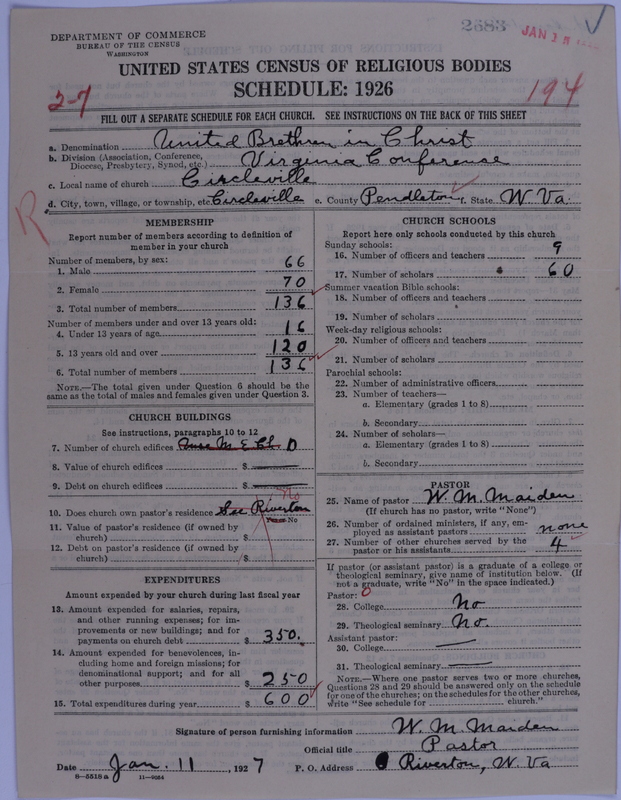 DEPARTMENT OF COMMERCE
BUREAU OF THE CENSUS
WASHINGTON
2683
JAN 15
UNITED STATES CENSUS OF RELIGIOUS BODIES
SCHEDULE: 1926
2-7
194
FILL OUT A SEPARATE SCHEDULE FOR EACH CHURCH. SEE INSTRUCTIONS ON THE BACK OF THIS SHEET
a. Denomination United Brethren in Christ
b. Division (Association, Conference, Diocese, Presbytery, Synod, etc.) Virginia Conference
c. Local name of church Circleville
d. City, town, village, or township, etc. Circleville e. County Pendleton f. State W. Va.
R
MEMBERSHIP
Report number of members according to definition of
member in your church
Number of members, by sex:
1. Male 66
2. Female 70
3. Total number of members 136
Number of members under and over 13 years old:
4. Under 13 years of age 16
5. 13 years old and over 120
6. Total number of members 136
NOTE.—The total given under Question 6 should be
same as the total of males and females given under Question 3.
CHURCH BUILDINGS
See instructions, paragraphs 10 to 12
7. Number of church edifices M E Ch 0
8. Value of church edifices $
9. Debt on church edifices $
No
10. Does church own pastor's residence See Riverton
Yes or No
11. Value of pastor's residence (if owned by
church) $
12. Debt on pastor's residence (if owned by
church) $
EXPENDITURES
Amount expended by your church during last fiscal year
13. Amount expended for salaries, repairs,
and other running expenses; for im-
provements or new buildings; and for
payments on church debt $ 350.
14. Amount expended for benevolences, in-
cluding home and foreign missions; for
denominational support; and for all
other purposes $ 250
15. Total expenditures during year $ 600
CHURCH SCHOOLS
Report here only schools conducted by this church
Sunday schools:
16. Number of officers and teachers 9
17. Number of scholars 60
Summer vacation Bible schools:
18. Number of officers and teachers
19. Number of scholars
Week-day religious schools:
20. Number of officers and teachers
21. Number of scholars
Parochial schools:
22. Number of administrative officers
23. Number of teachers—
a. Elementary (grades 1 to 8)
b. Secondary
24. Number of scholars—
a. Elementary (grades 1 to 8)
b. Secondary
PASTOR
25. Name of pastor W. M. Maiden
(If church has no pastor, write "None")
26. Number of ordained ministers, if any, em-
ployed as assistant pastors none
27. Number of other churches served by the
pastor or his assistants 4
If pastor (or assistant pastor) is a graduate of a college or
theological seminary, give name of institution below. (If
not a graduate, write "No" in the space indicated.)
Pastor: 0
28. College No
29. Theological seminary No.
Assistant pastor:
30. College
31. Theological seminary
NOTE.—Where one pastor serves two or more churches,
Questions 28 and 29 should be answered only on the schedule
for one of the churches; on the schedules for the other churches,
write "See schedule for church."
Signature of person furnishing information W. M. Maiden
Official title Pastor
Date Jan. 11, 1927 P. O. Address Riverton, W. Va
8—5518 a 11—9064